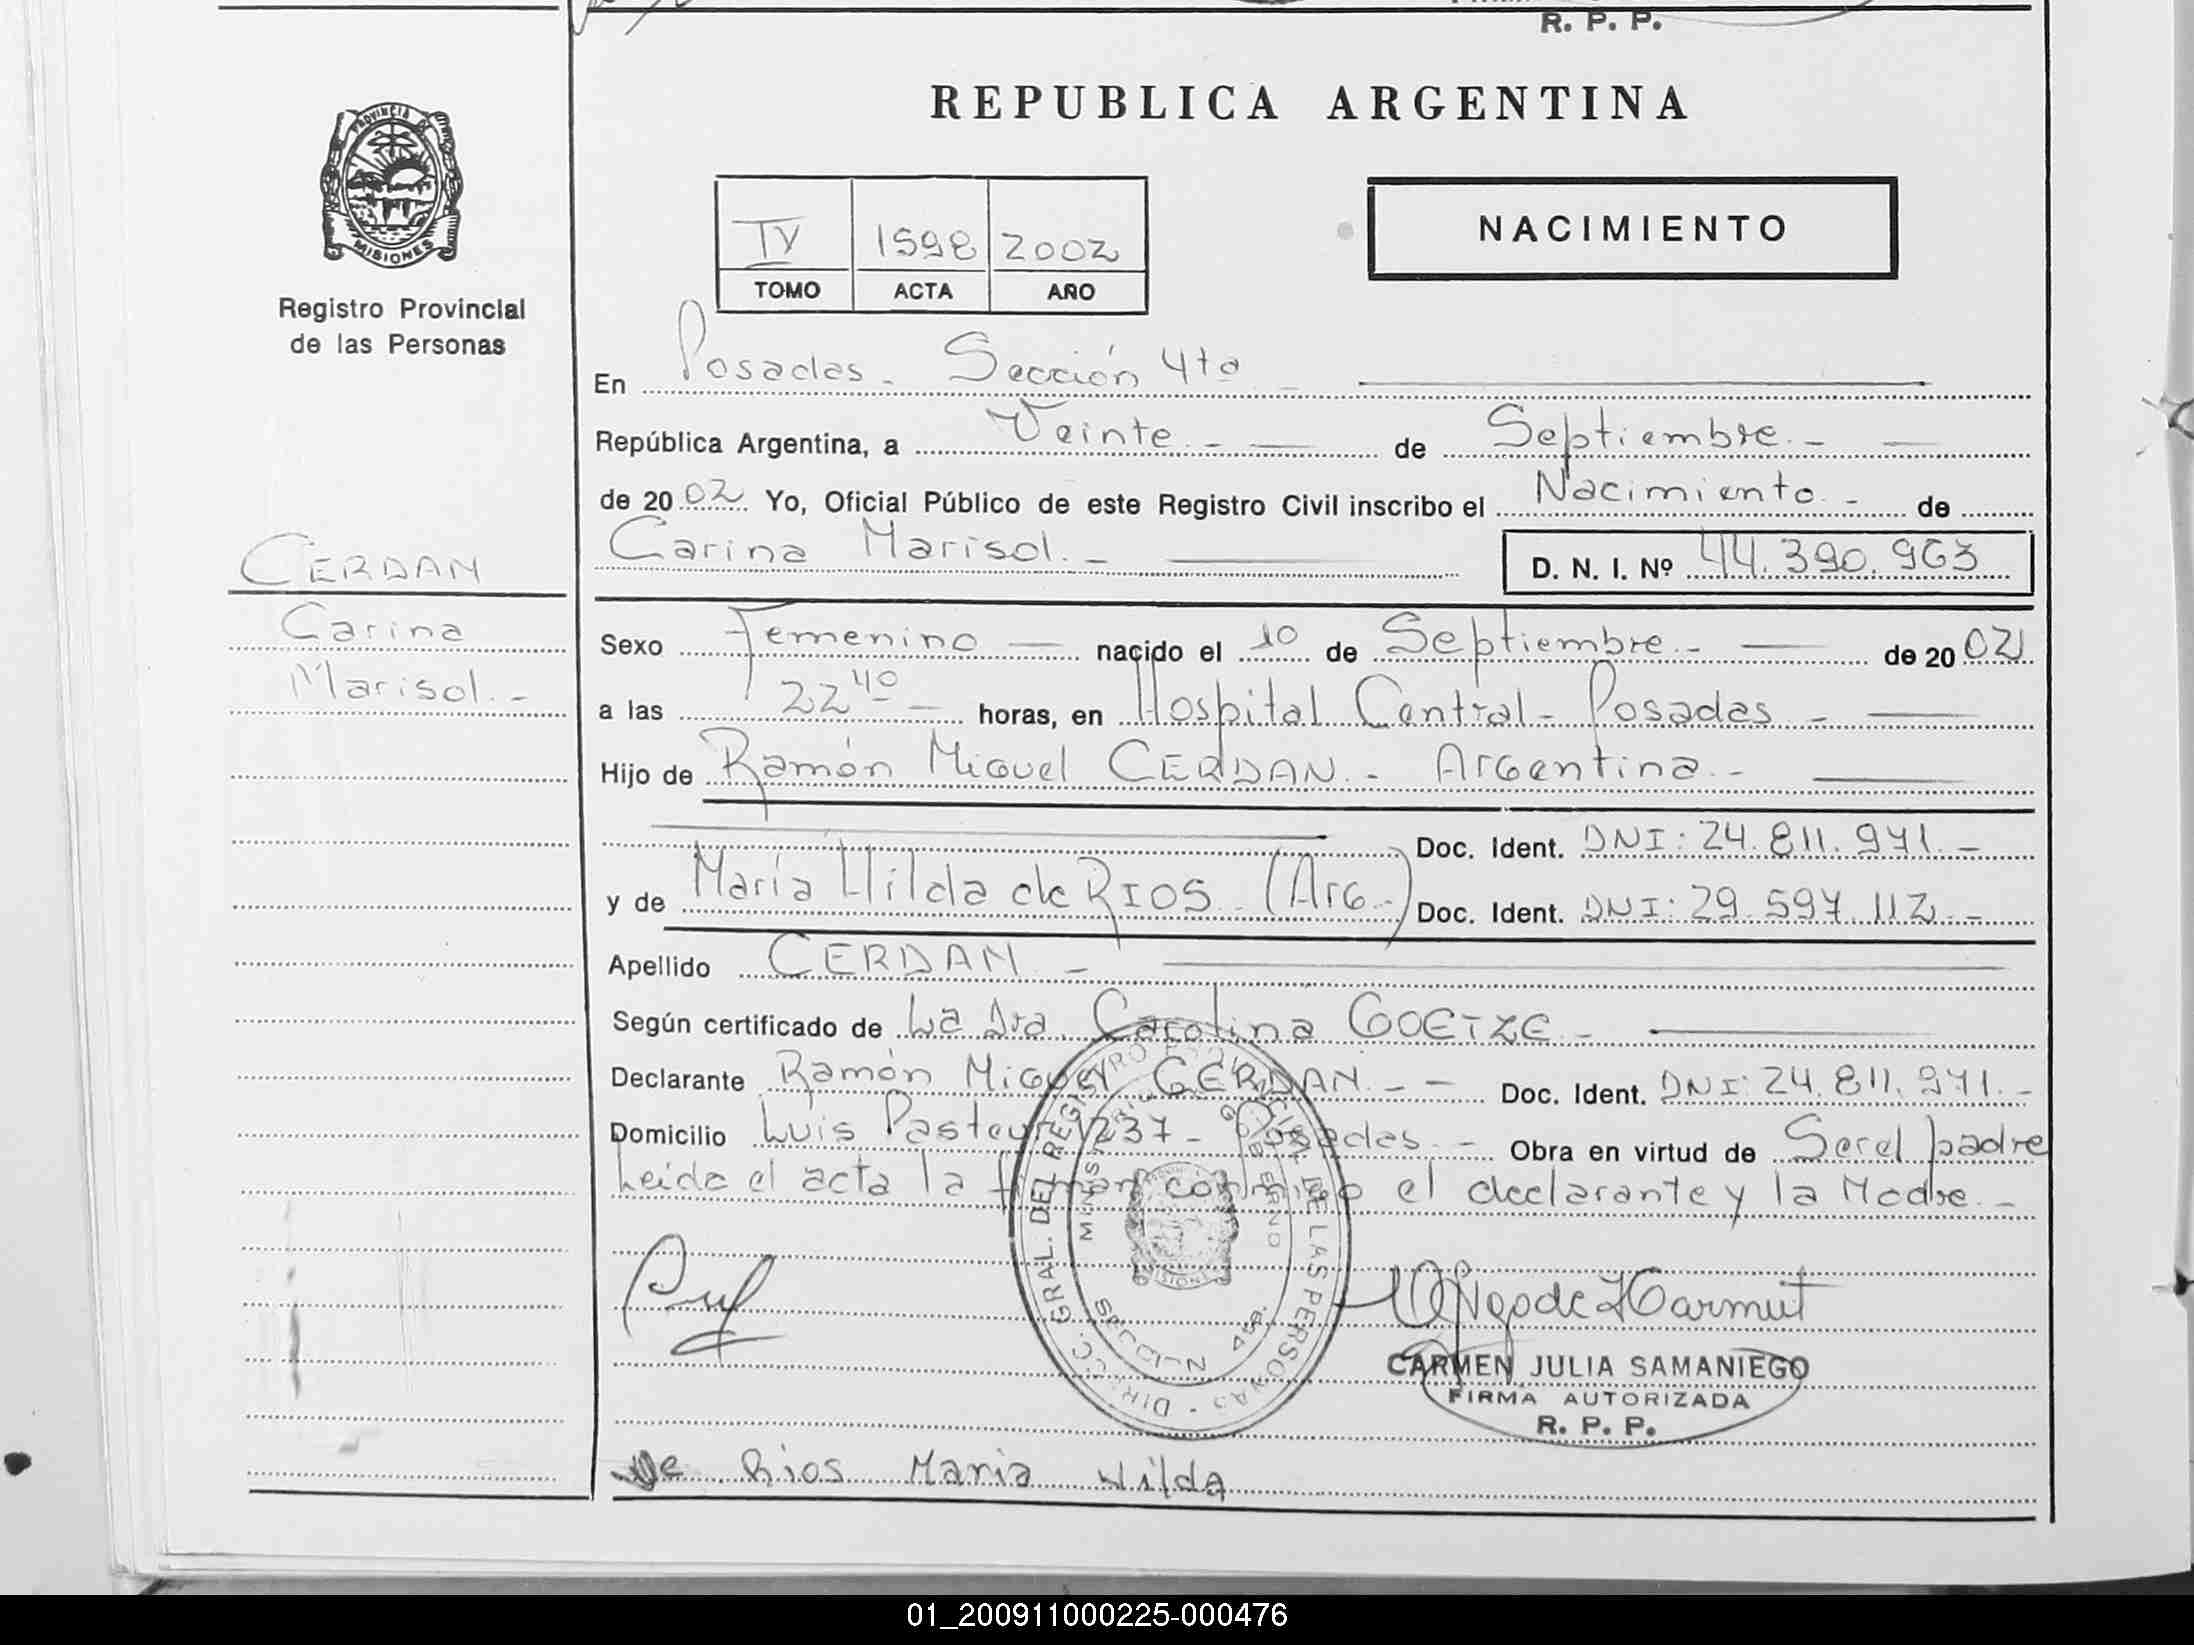 R. P. P.
REPUBLICA ARGENTINA
PROVINCIA DE
MISIONES
Registro Provincial
de las Personas
IV 1598 2002
TOMO ACTA AÑO
NACIMIENTO
En Posadas - Sección 4ta -
República Argentina, a Veinte - de Septiembre -
de 2002 Yo, Oficial Público de este Registro Civil inscribo el Nacimiento - de
Carina Marisol. - D. N. I. Nº 44.390.963
CERDAN
Carina
Marisol. -
Sexo Femenino nacido el 10 de Septiembre - de 2002
a las 22 40 horas, en Hospital Central - Posadas -
Hijo de Ramón Miguel CERDAN. - Argentina. -
Doc. Ident. DNI: 24.811.941. -
y de María Hilda de RIOS (Arg.-) Doc. Ident. DNI: 29.597.112. -
Apellido CERDAN -
Según certificado de La Dra. Carolina GOETZE -
Declarante Ramón Miguel CERDAN - - Doc. Ident. DNI: 24.811.941. -
Domicilio Luis Pasteur 1237 - Posadas. - Obra en virtud de Ser el padre
Leida el acta la firman conmigo el declarante y la Madre. -
DIRECC. GRAL. DEL REGISTRO PROVINCIAL DE LAS PERSONAS
SECCION 4ta.
CARMEN JULIA SAMANIEGO
FIRMA AUTORIZADA
R. P. P.
De Rios Maria Hilda
01_200911000225-000476